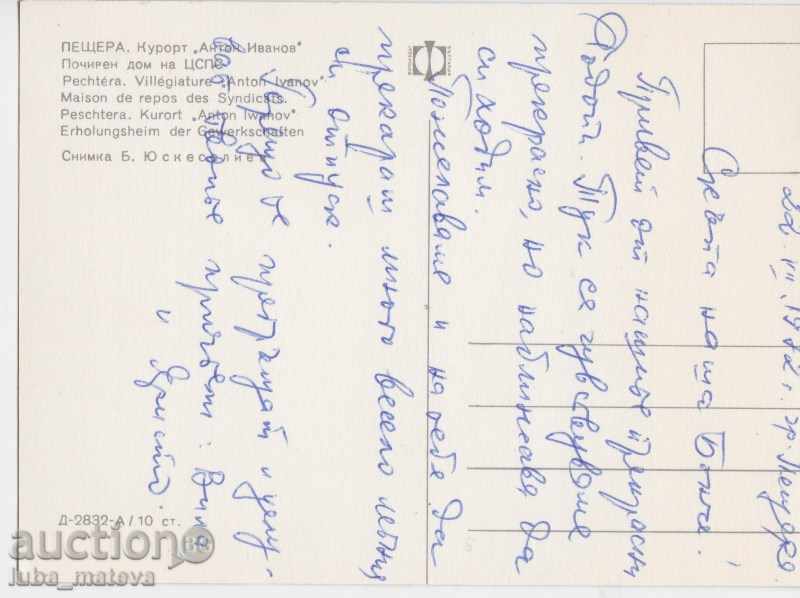 ПЕЩЕРА. Курорт „Антон Иванов"
Почивен дом на ЦСПС
Pechtéra. Villégiature "Anton Ivanov"
Maison de repos des Syndicats.
Peschtera. Kurort "Anton Iwanow"
Erholungsheim der Gewerkschaften
Снимка Б. Юскеселиев
Д-2832-А/10 ст.
22. VII. 1972 г. гр. Пещера.
Скъпа наша
Привет от нашия прекрасни
Тук се чувствуваме
прекрасно, но наближава да
си ходим.
Пожелаваме и на тебе да
прекараш много весело летния
си отпуск.
Горещо те прегръщат и целу-
ват твоите
и
auction
luba_mateva